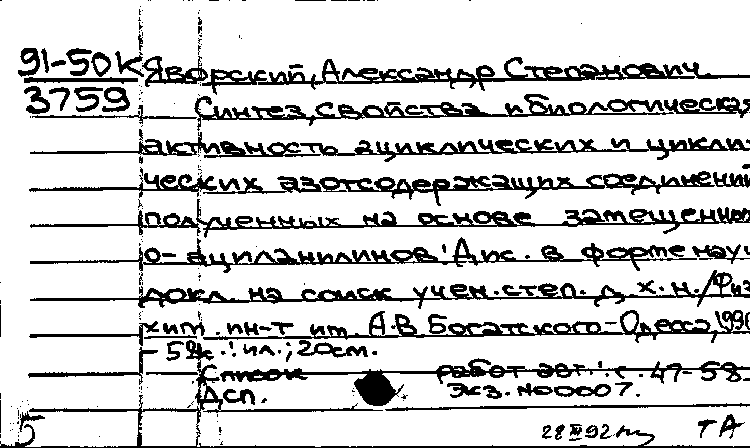 91-50К Яворский, Александр Степанович.
3759 Синтез, свойства и биологическая
активность ациклических и цикли-
ческих азотсодержащих соединений
полученных на основе замещенных
о-ациланилинов: Дис. в форме науч
докл. на соиск учен. степ. д. х. н./Физ
хим. ин-т им. А.В. Богатского-Одесса, 1990
- 58к.: ил.; 20см.
Список работ авт.: с. 47-58
Дсп. Экз. N00007.
5 28 III 92 ТА